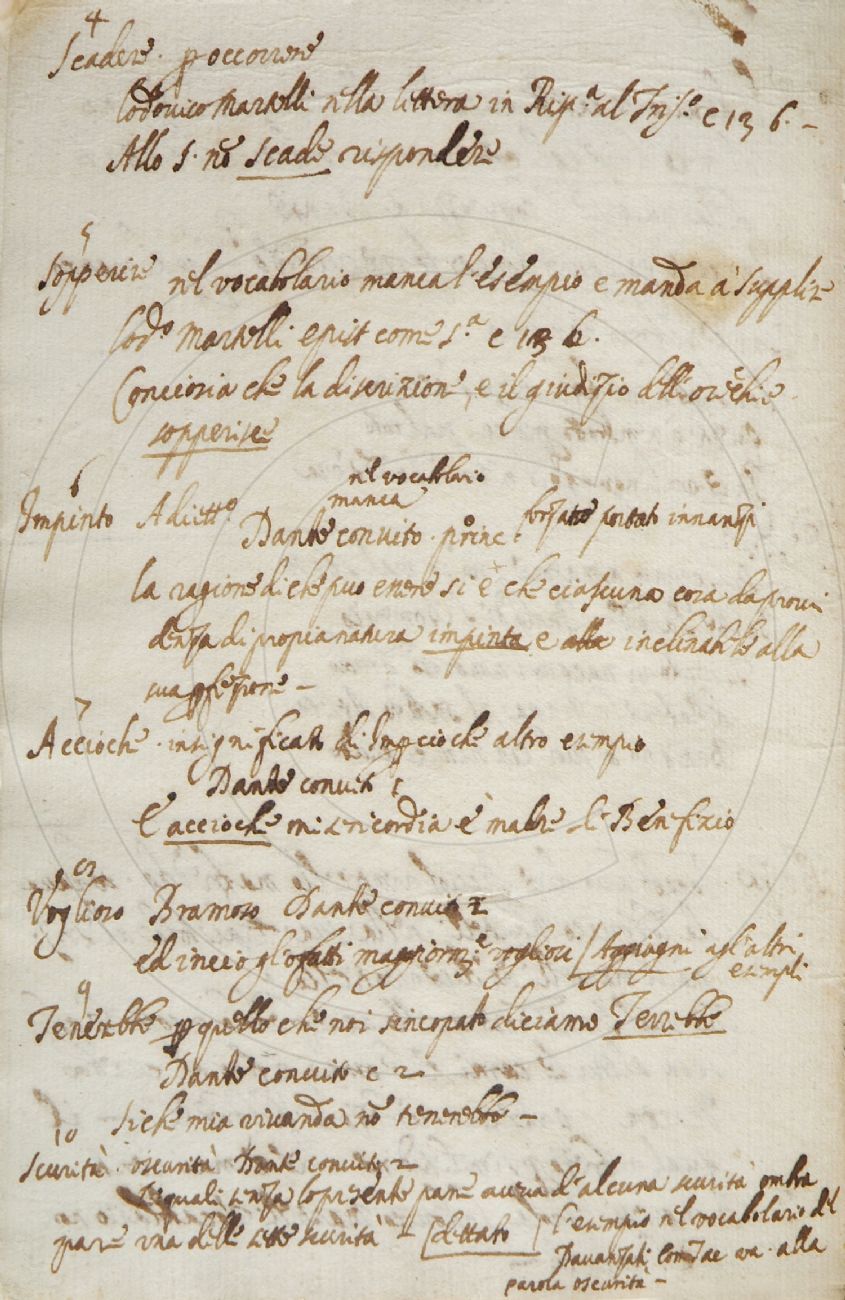 4
Scadere. p occorrere
Lodovico Martelli nella lettera in Risp.ª al Tris.º c 13 6. –
Allo S. nõ scade rispondere
5
Sopperire nel vocabolario manca l'esempio e manda a supplire
Lod.º Martelli epist come s.ª c 13 6.
Conciosia che la discrizione, e il giudizio dell'orechie
sopperisce
6
nel vocabolario
Impinto Adiett.º manca
Dante convito princ.º forzato portato innanzi
la ragione di che puo essere si è che ciascuna cosa da provi
denza di propia natura impinta e inclinabile alla
sua pfezione –
7
Accioche. in significato di Impcioche altro esempio
Dante convit 1
E accioche misericordia è madre di Benefizio
8
Voglioso Bramoso Dante convit 2
ed in ciò gl'ho fatti maggiorm.e vogliosi / Aggiugni agl'altri
esempli
9
Tenerebbe p quello che noi sincopato diciamo Terrebbe
Dante convito c 2
Siche mia vivanda nõ tenerebbe –
10
Scurità. oscurità Dante convito 2
I quali senza lo psente pane avea d'alcuna scurità ombra
pare una delle sette scurità – [dettato] l'esempio nel vocabolario del
Davanzati va alla
parola oscurità –